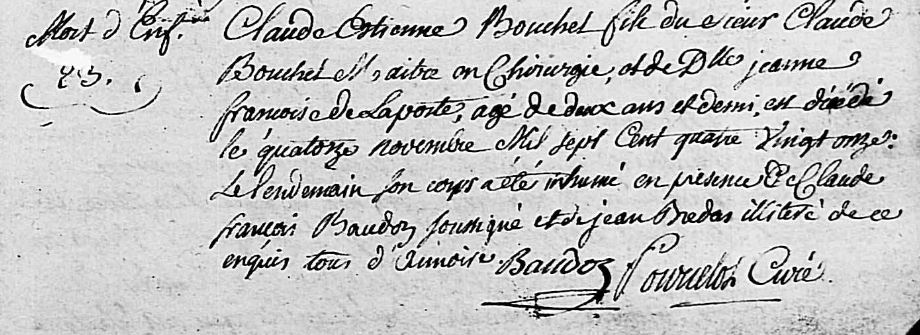 Mort d'Enf.
23.
Claude Estienne Bouchet fils du sieur Claude
Bouchet Maitre en Chirurgie, et de Dlle jeanne
françoise de Laporte, agé de deux ans et demi, est décédé
le quatorze novembre Mil sept Cent quatre Vingt onze:
Le lendemain son corps a été inhumé en présence de Claude
françois Baudoz soussigné et de jean Bredas illiteré de ce
enquis tous d'Aimoise. Baudoz Curé.